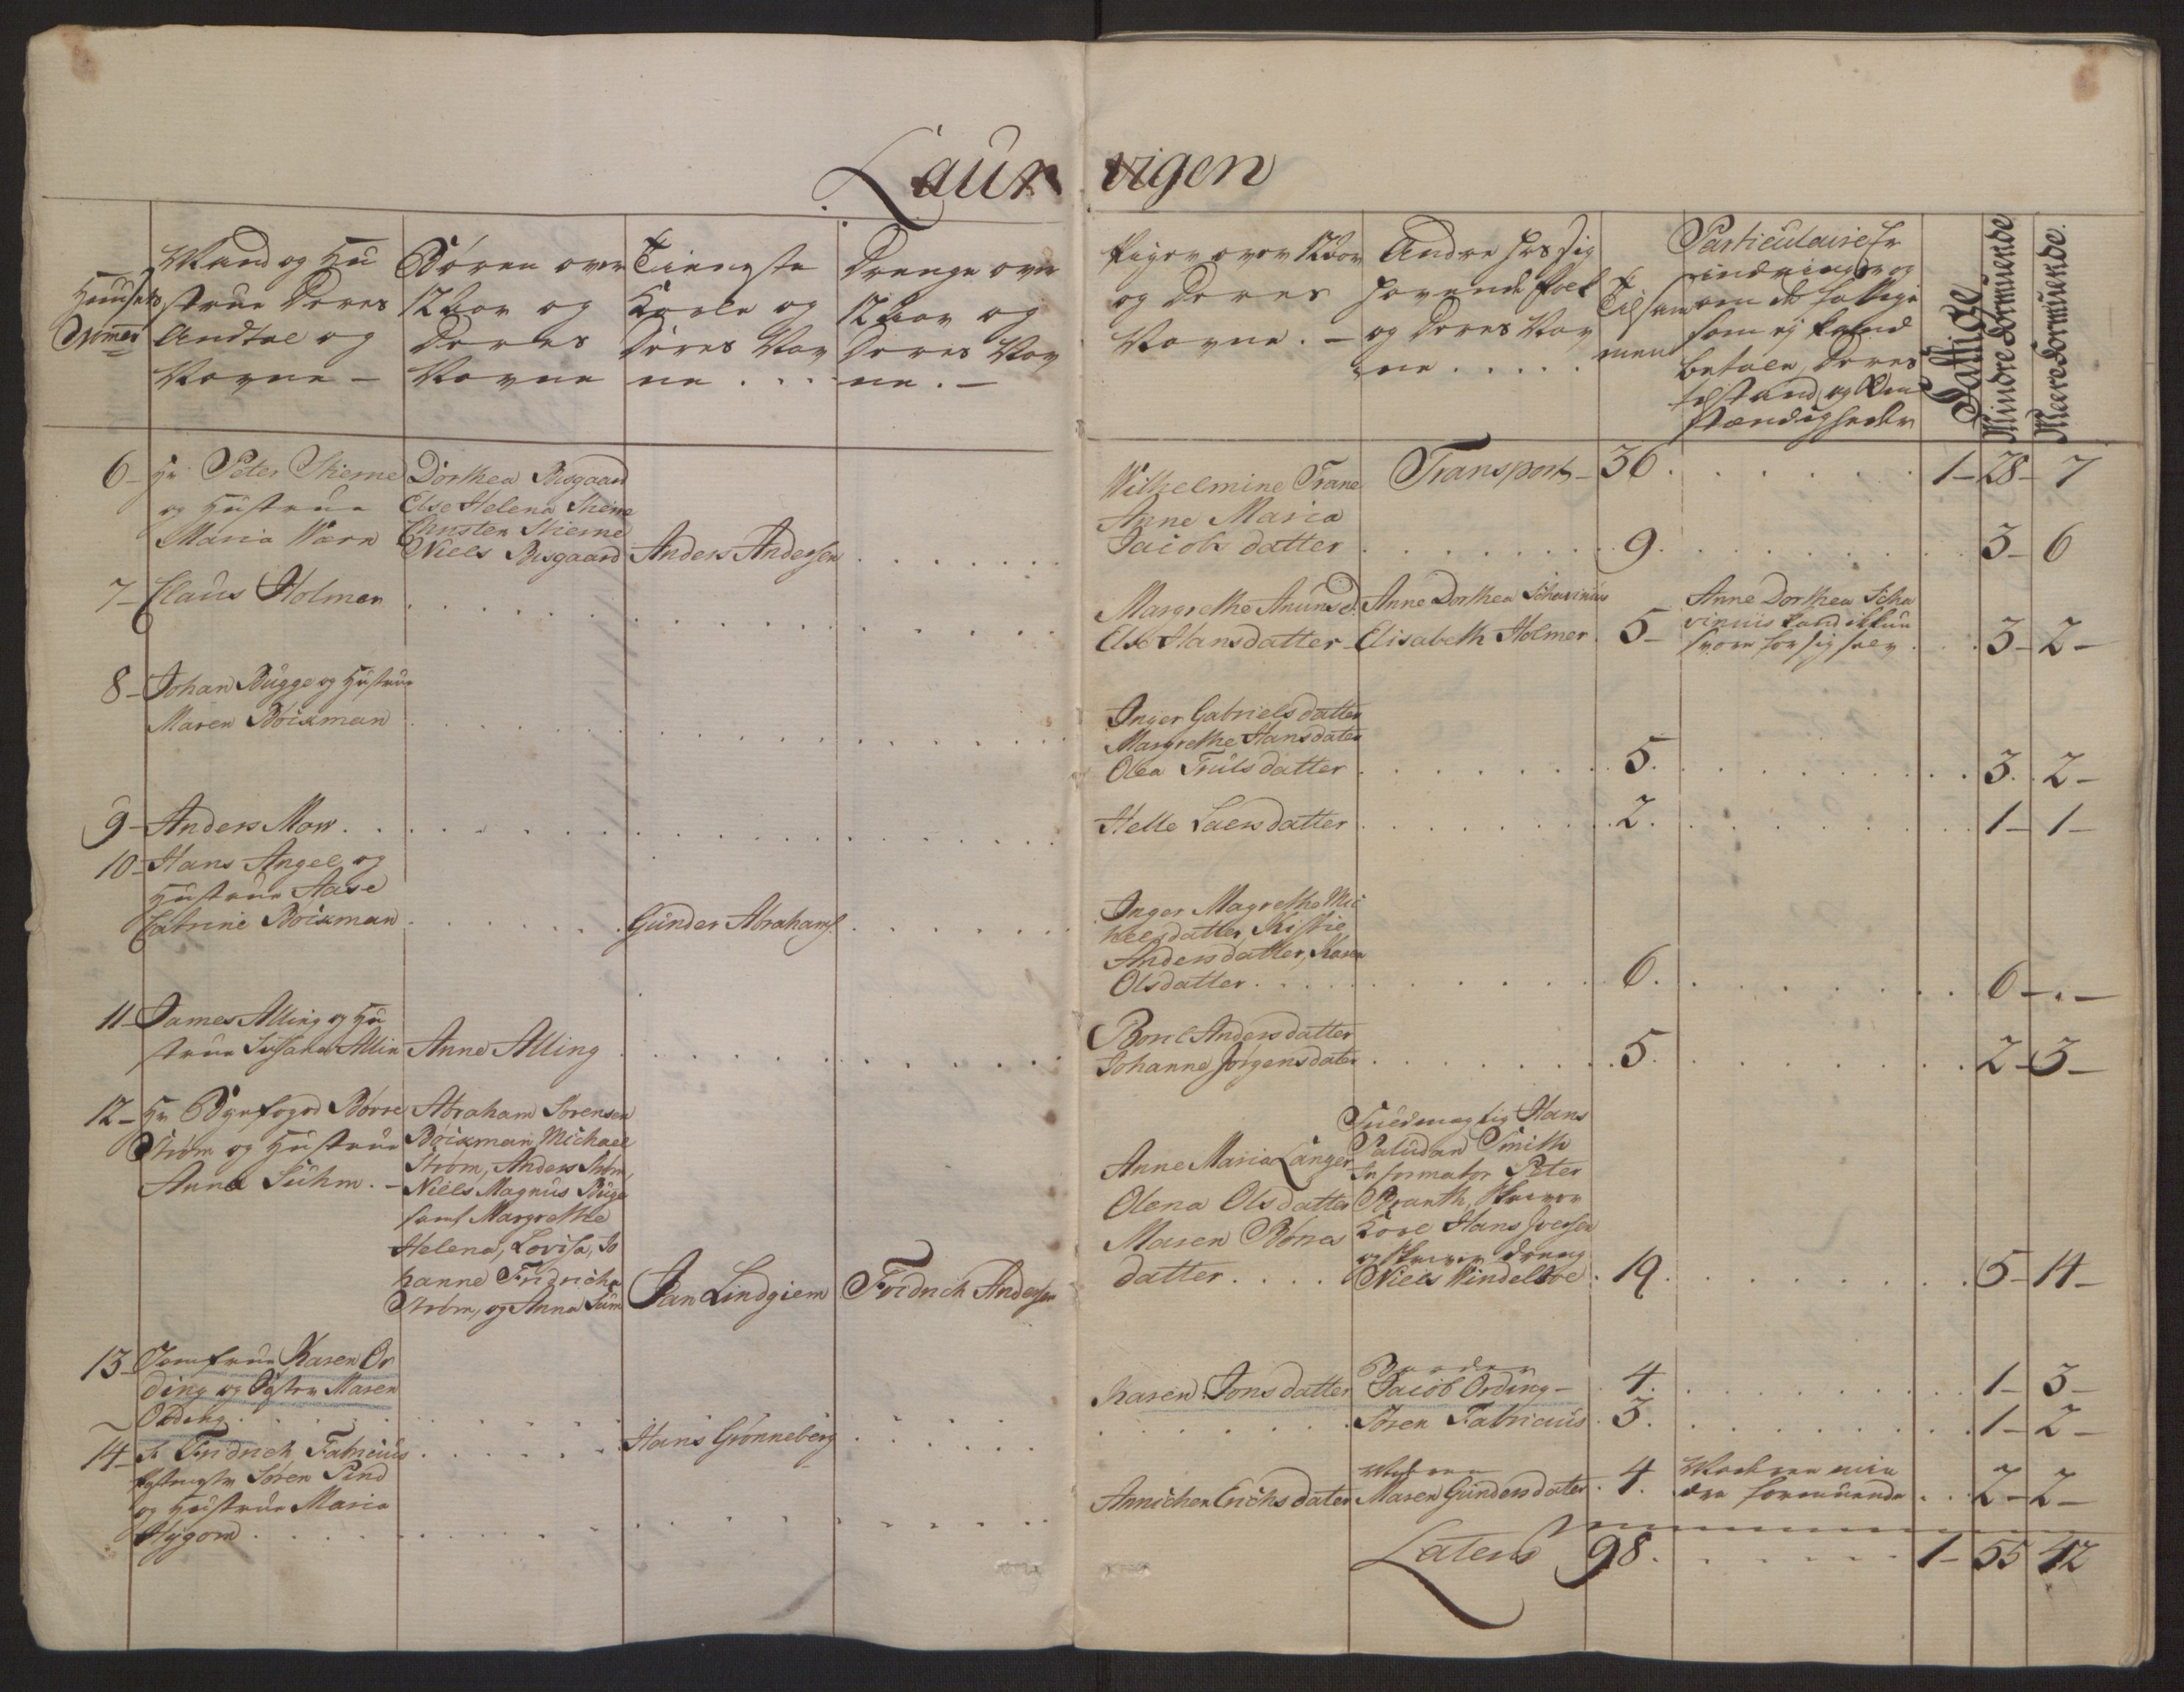 Laur vigen
Huusets
Nomer
Mand og Hu
strue Deres
Andtal og
Navne -
Børen over
12 Aar og
Deres
Navne
Tieneste
Karle og
Deres Nav
ne . . .
Drenge over
12 Aar og
Deres Nav
ne . -
Piger over 12 Aar
og Deres
Navne . -
Andre hos sig
havende Folk
og Deres Nav
ne . . . . .
Tilsam
men
Particulaire Er
indringer og
om de fattige
som ej kand
betale, Deres
tilstand og Om
stændigheder
Fattige
Mindre formuende
Meere formuende.
6 - Hr. Peter Stierne
og Hustrue
Maria Wærn
Dorthea Bisgaard
Else Helena Stierne
Christen Stierne
Niels Bisgaard
Anders Andersen
Wilhelmine Trane
Anne Maria
Jacobs datter
Transport - 36 . 1 - 28 - 7
9 . 3 - 6
7 - Claus Holmer
Margrethe Anunsd.
Else Hansdatter
Anne Dorthea Schavinius
Elisabeth Holmer
5 -
Anne Dorthea Scha
vinius kand ikkun
svare for sig selv
3 - 2 -
8 - Johan Bugge og Hustrue
Maren Böixman
Inger Gabriels datter
Margrethe Hansdater
Olea Truls datter
5. 3. 2 -
9 - Anders Mow .
Helle Laersdatter
2. 1 - 1 -
10 - Hans Angel og
Hustrue Aase
Catrine Böixman
Gunder Abrahams.
Inger Magrethe Mic
kelsdatter, Kistie
Anders datter, Karen
Olsdatter . .
6. 6 - . -
11 - James Alling og Hu
strue Susana Allin
Anne Alling
Boril Anders datter
Johanne Jørgensdater
5. 2 - 3 -
12 - Hr Byefoged Børre
Strøm og Hustrue
Anna Suhm . -
Abraham Sørensen
Böixman, Michael
Strøm, Anders Strøm,
Niels Magnus Buge
samt Margrethe
Helena, Lovisa, Jo
hanne Fridricha
Strøm, og Anna Sum
Jan Lindgiem
Fridrich Andersen
Anne Maria Langer
Olena Olsdatter
Maren Børres
datter . . . .
Fuldmægtig Hans
Paludan Smith
Informator Peter
Branth, Skriver
Karl Hans Iversen
og Skriver dreng
Niels Windeltoe
19. 5 - 14 -
13 - Jomfrue Karen Or
ding og Søster Maren
Ording .
Karen Jons datter
Broder
Jacob Ording -
4. 1 - 3 -
14 - Sr Fridrich Fabricius
Hans Grønneberg
Søren Fabricius
3. 1 - 2 -
Søren Pind
og Hustrue Maria
Hygom .
Annichen Erichs dater
Maren Gundersdater
4.
Moderen min
dre formuende
2 - 2 -
Lateris 98. 1 - 55 42